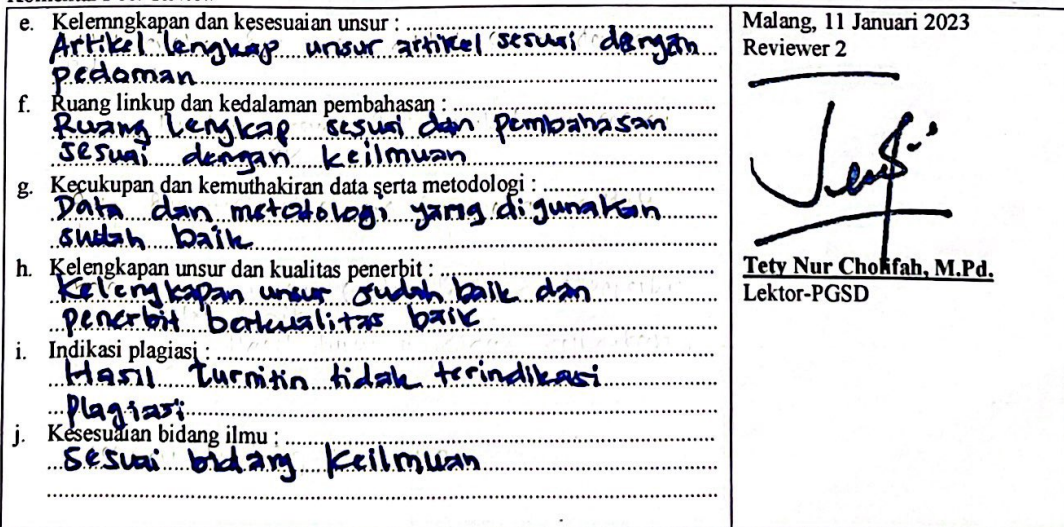 e. Kelemngkapan dan kesesuaian unsur :
Artikel lengkap unsur artikel sesuai dengan
pedoman
f. Ruang linkup dan kedalaman pembahasan :
Ruang Lengkap sesuai dan pembahasan
sesuai dengan keilmuan
g. Kecukupan dan kemuthakiran data serta metodologi :
Data dan metodologi yang digunakan
sudah baik
h. Kelengkapan unsur dan kualitas penerbit :
Kelengkapan unsur sudah baik dan
penerbit berkualitas baik
i. Indikasi plagiasi :
Hasil turnitin tidak terindikasi
plagiasi
j. Kesesuaian bidang ilmu :
sesuai bidang keilmuan
Malang, 11 Januari 2023
Reviewer 2
Tety Nur Cholifah, M.Pd.
Lektor-PGSD